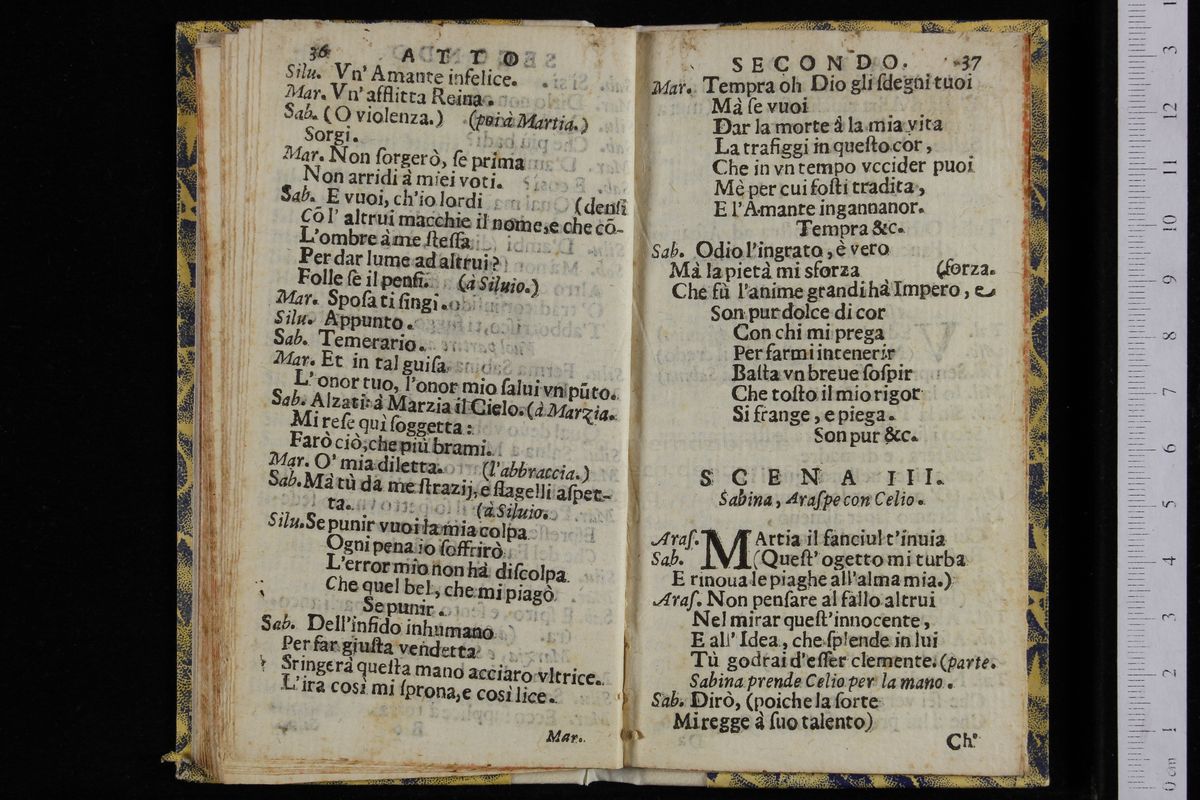 36 ATTO
Silu. Vn' Amante infelice.
Mar. Vn' afflitta Reina.
Sab. (O violenza.) (poi à Martia.)
Sorgi.
Mar. Non sorgerò, se prima
Non arridi à miei voti.
Sab. E vuoi, ch'io lordi (densi
Cō l' altrui macchie il nome, e che cō-
L'ombre à me stessa
Per dar lume ad altrui?
Folle se il pensi. (à Siluio.)
Mar. Sposati fingi.
Silu. Appunto.
Sab. Temerario.
Mar. Et in tal guisa
L' onor tuo, l'onor mio salui vn pūto.
Sab. Alzati: à Marzia il Cielo. (à Marzia.
Mi rese quì soggetta:
Farò ciò, che più brami.
Mar. O' mia diletta. (l'abbraccia.)
Sab. Mà tù da me strazij, e flagelli aspet-
ta. (à Siluio.
Silu. Se punir vuoi la mia colpa
Ogni pena io soffrirò
L'error mio non hà discolpa
Che quel bel, che mi piagò
Se punir.
Sab. Dell'infido inhumano
Per far giusta vendetta
Sringerà questa mano acciaro vltrice.
L'ira così mi sprona, e così lice.
Mar.
SECONDO. 37
Mar. Tempra oh Dio gli sdegni tuoi
Mà se vuoi
Dar la morte à la mia vita
La trafiggi in questo cor,
Che in vn tempo vccider puoi
Mè per cui fosti tradita,
E l'Amante ingannanor.
Tempra &c.
Sab. Odio l'ingrato, è vero
Mà la pietà mi sforza (forza.
Che fù l'anime grandi hà Impero, e
Son pur dolce di cor
Con chi mi prega
Per farmi intenerir
Basta vn breue sospir
Che tosto il mio rigor
Si frange, e piega.
Son pur &c.
SCENA III.
Sabina, Araspe con Celio.
Aras. MArtia il fanciul t'inuia
Sab. (Quest' ogetto mi turba
E rinoua le piaghe all'alma mia.)
Aras. Non pensare al fallo altrui
Nel mirar quest'innocente,
E all' Idea, che splende in lui
Tù godrai d'esser clemente. (parte.
Sabina prende Celio per la mano.
Sab. Dirò, (poiche la sorte
Mi regge à suo talento)
Ch'